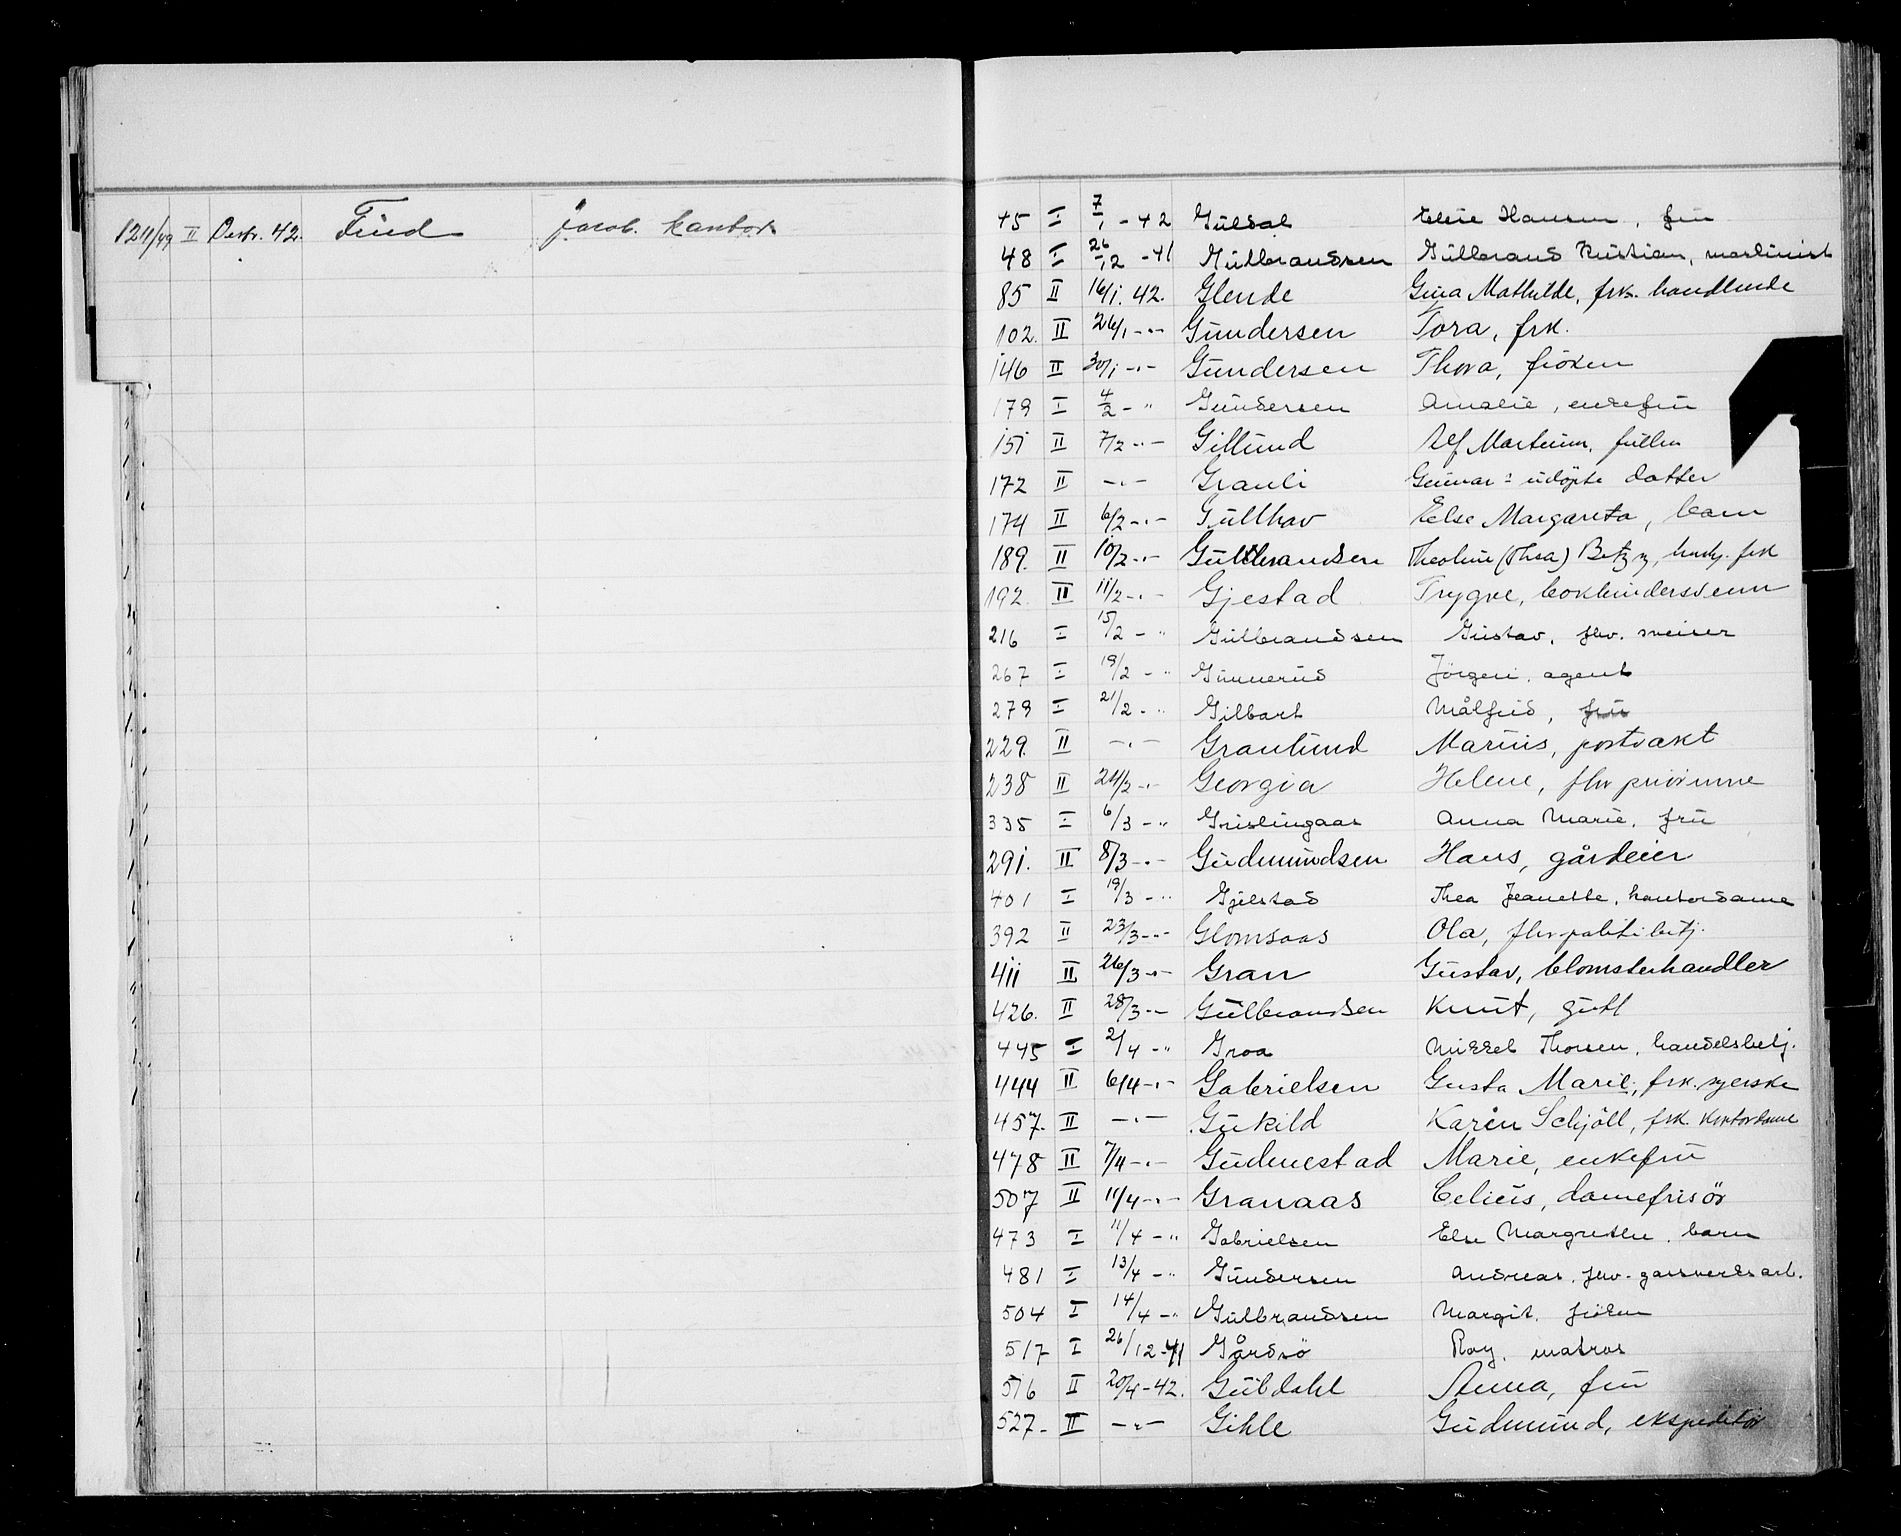 1211/49 II Desbr. 42. Fried Jacob. kantor
45 I 7/1 - 42 Guldal Elise Hansen, fru
48 I 26/12 - 41 Gulbrandsen Gulbrand Kristian, maskinist
85 II 16/1. 42. Glende Gina Mathilde, frk. handlende
102. II 26/1 -"- Gundersen Tora, frk.
146 II 30/1 -"- Gundersen Thora, fröken
179 I 4/2 - " Gundersen Amalie, enkefru
151 II 7/2 -"- Gillund Alf Martinm, fullm
172 II -"- Grauli Gunnar's udöpte datter
174 II 6/2 -"- Gullhav Else Margareta, barn
189. II 10/2 -"- Gulbrandsen Theoline (Thea) Betzy, husbj. frk
192 II 11/2 -"- Gjestad Trygve, bokbindersvenn
216 I 15/2 - " Gulbrandsen Gustav, fhv. sveiser
267 I 19/2 - " Gunnerud Jörgen, agent
279 I 21/2 - " Gilbart Målfrid, fru
229. II -"- Granlund Marius, postvakt
238 II 24/2 -"- Georgia Helene, fhv priorinne
335 I 6/3 - " Grislingaas Anna Marie, fru
291. II 8/3 -"- Gudmundsen Hans, gårdeier
401 I 19/3 - " Gjelstad Thea Jeanette, kontordame
392 II 23/3 -"- Glomsaas Ola, fhv politibetj.
411 II 26/3 -"- Gran Gustav, blomsterhandler
426. II 28/3 -"- Gulbrandsen Knut, gutt
445 I 2/4 - " Groa Mikkel Thorsen, handelsbetj.
444 II 6/4 -"- Gabrielsen Gusta Marie, frk. syerske
457. II -"- Gukild Karen Schjöll, frk. kontordame
478 II 7/4 -"- Gudmestad Marie, enkefru
507 II 11/4 -"- Granaas Celius, damefrisör
473 I 11/4 - " Gabrielsen Else Margrethe, barn
481 I 13/4 - " Gundersen Andreas, fhv. gassverksarb.
504 I 14/4 - " Gulbrandsen Margit, fröken
517 I 26/12 - 41 Gårdsö Roy, matros
516 II 20/4 - 42. Guldahl Anna, fru
527. II -"- Gihle Gudmund, ekspeditör